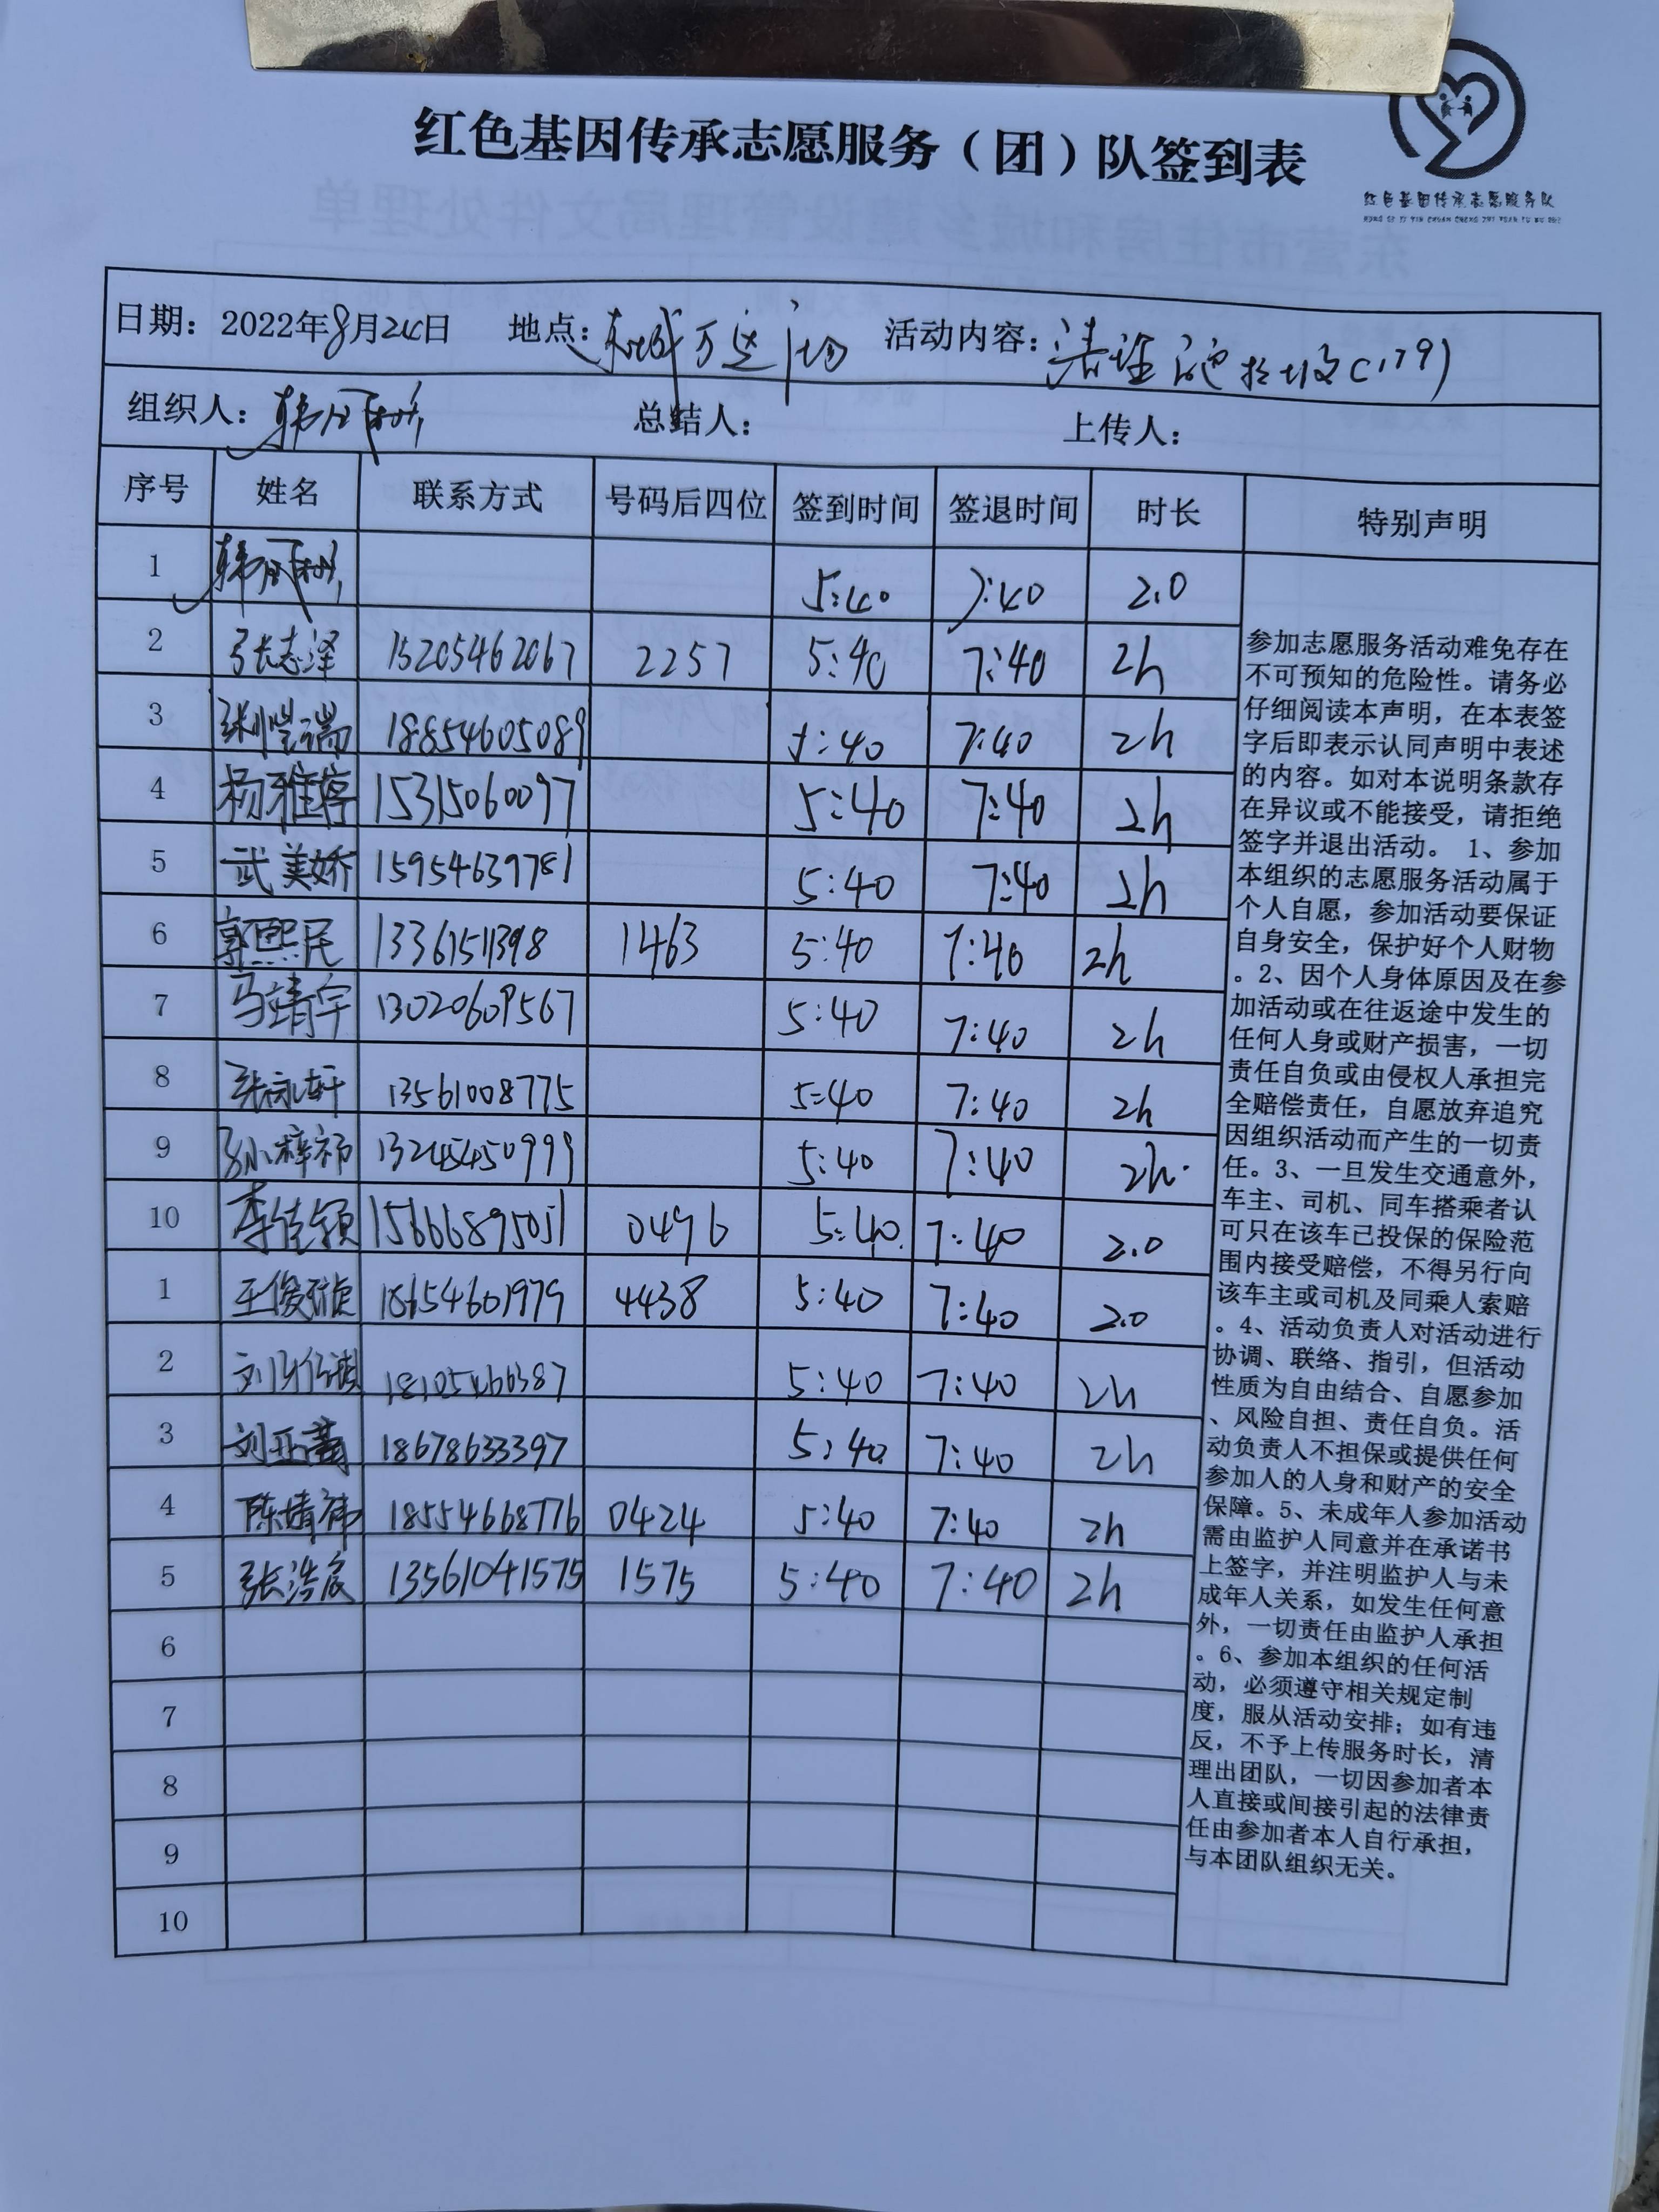 红色基因传承志愿服务（团）队签到表
红色基因传承志愿服务队
HONG SE JI YIN CHUAN CHENG ZHI YUAN FU WU DUI
日期：2022年8月24日 地点：东城万达广场 活动内容：清理垃圾(179)
组织人： 总结人： 上传人：
序号 姓名 联系方式 号码后四位 签到时间 签退时间 时长 特别声明
1 5:40 7:40 2.0
2 张志泽 15205462067 2257 5:40 7:40 2h
3 18854605089 5:40 7:40 2h
4 杨雅婷 15315060097 5:40 7:40 2h
5 武美娇 15954639781 5:40 7:40 2h
6 郭熙民 13361511398 1463 5:40 7:40 2h
7 马靖宇 13020609567 5:40 7:40 2h
8 张轩 13561008775 5:40 7:40 2h
9 孙梓祁 5:40 7:40 2h
10 李佳颖 15666895051 0496 5:40 7:40 2.0
1 王俊 18654601979 4438 5:40 7:40 2.0
2 18105466387 5:40 7:40 2h
3 18678633397 5:40 7:40 2h
4 陈婧祎 18554668776 0424 5:40 7:40 2h
5 张浩宸 13561041575 1575 5:40 7:40 2h
6
7
8
9
10
参加志愿服务活动难免存在
不可预知的危险性。请务必
仔细阅读本声明，在本表签
字后即表示认同声明中表述
的内容。如对本说明条款存
在异议或不能接受，请拒绝
签字并退出活动。 1、参加
本组织的志愿服务活动属于
个人自愿，参加活动要保证
自身安全，保护好个人财物
。2、因个人身体原因及在参
加活动或在往返途中发生的
任何人身或财产损害，一切
责任自负或由侵权人承担完
全赔偿责任，自愿放弃追究
因组织活动而产生的一切责
任。3、一旦发生交通意外，
车主、司机、同车搭乘者认
可只在该车已投保的保险范
围内接受赔偿，不得另行向
该车主或司机及同乘人索赔
。4、活动负责人对活动进行
协调、联络、指引，但活动
性质为自由结合、自愿参加
、风险自担、责任自负。活
动负责人不担保或提供任何
参加人的人身和财产的安全
保障。5、未成年人参加活动
需由监护人同意并在承诺书
上签字，并注明监护人与未
成年人关系，如发生任何意
外，一切责任由监护人承担
。6、参加本组织的任何活
动，必须遵守相关规定制
度，服从活动安排；如有违
反，不予上传服务时长，清
理出团队，一切因参加者本
人直接或间接引起的法律责
任由参加者本人自行承担，
与本团队组织无关。